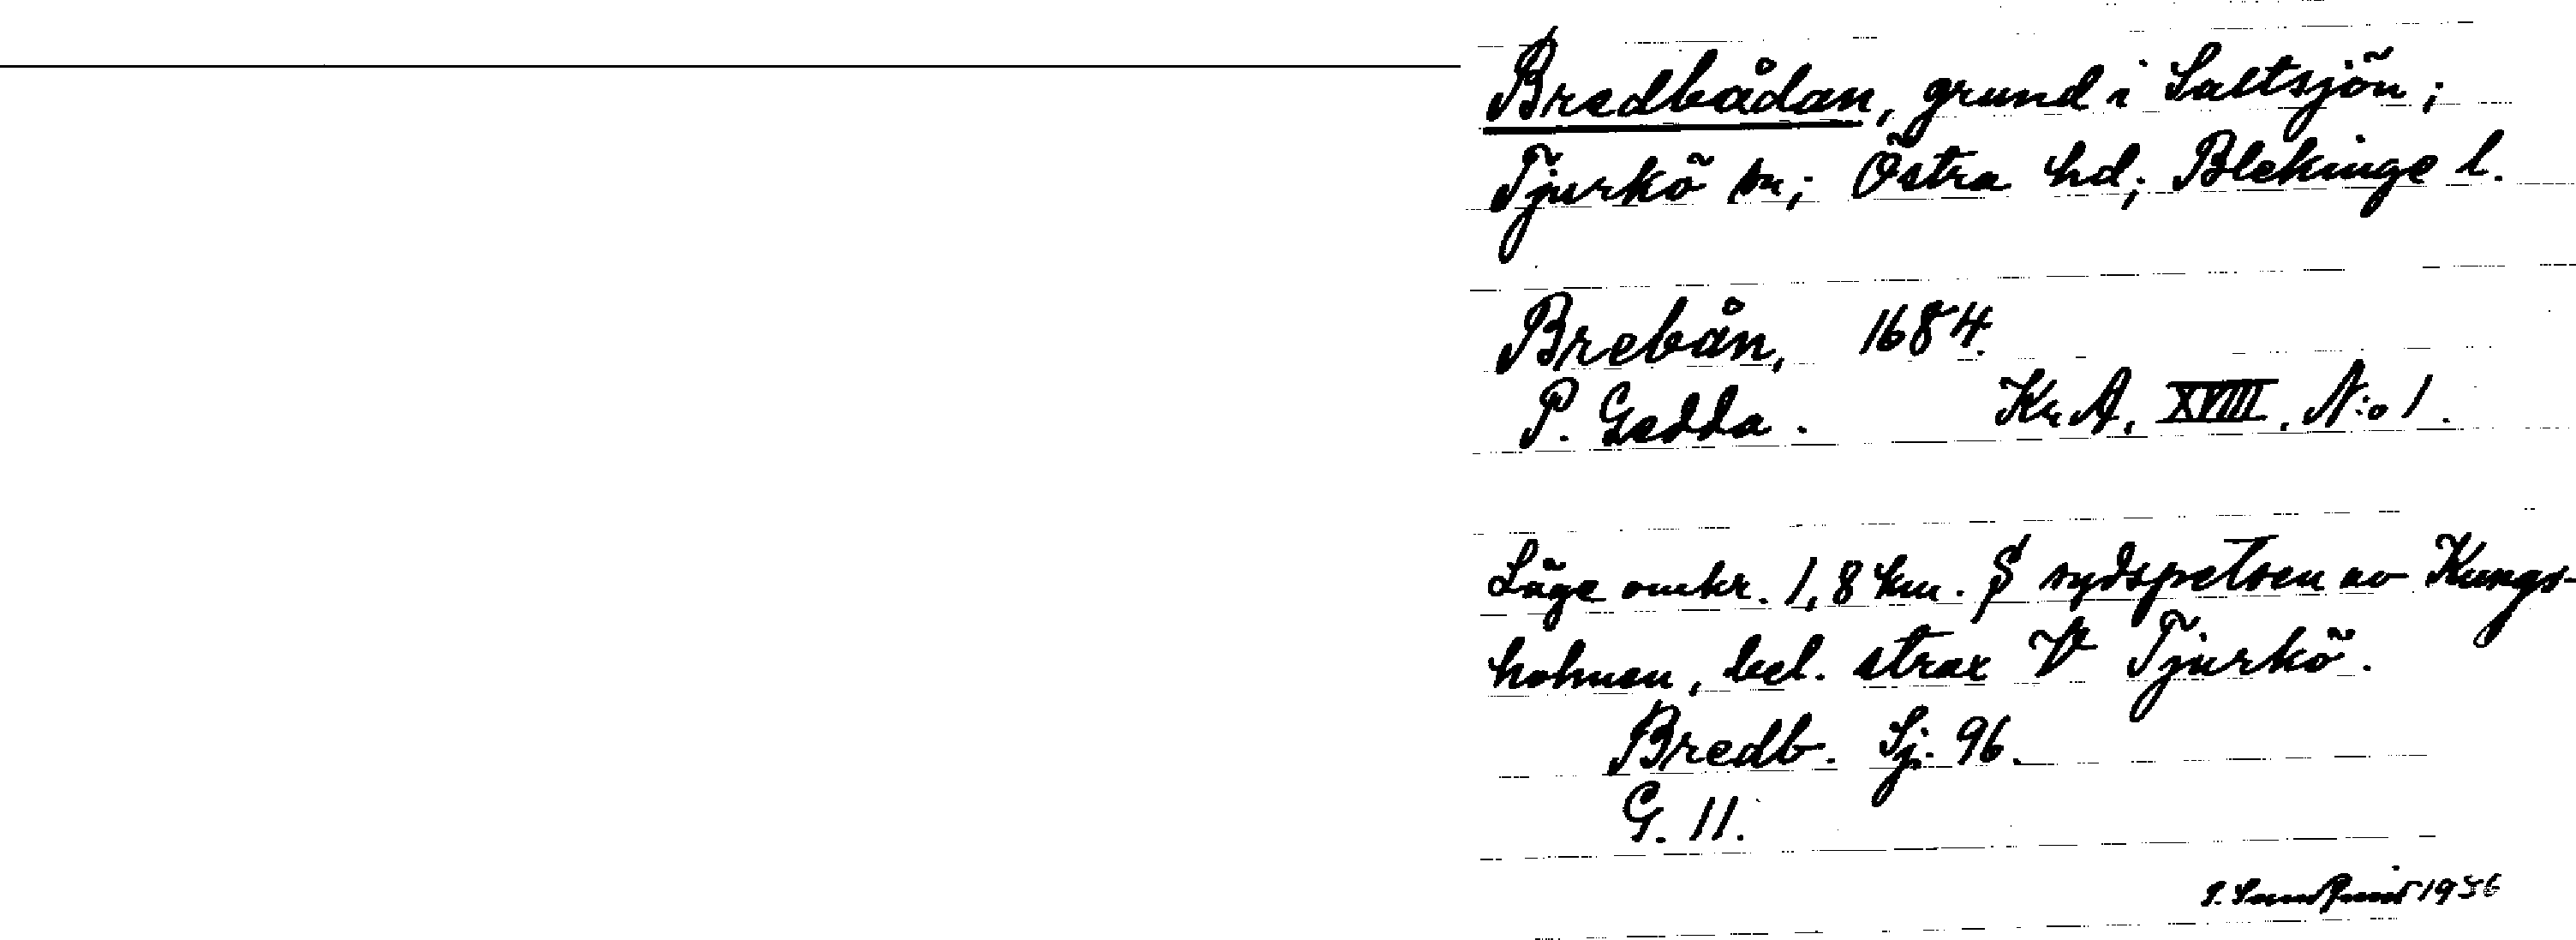 Bredbådan, grund i Saltsjön;
Tjurkö sn; Östra hd; Blekinge l.
Brebån, 1684.
P. Gedda. Kr. A. XVIII. N:o 1.
Läge omkr. 1,8 km. S sydspetsen av Kungs-
holmen, bel. strax V Tjurkö.
Bredb. Sj. 96.
G. 11.
1956